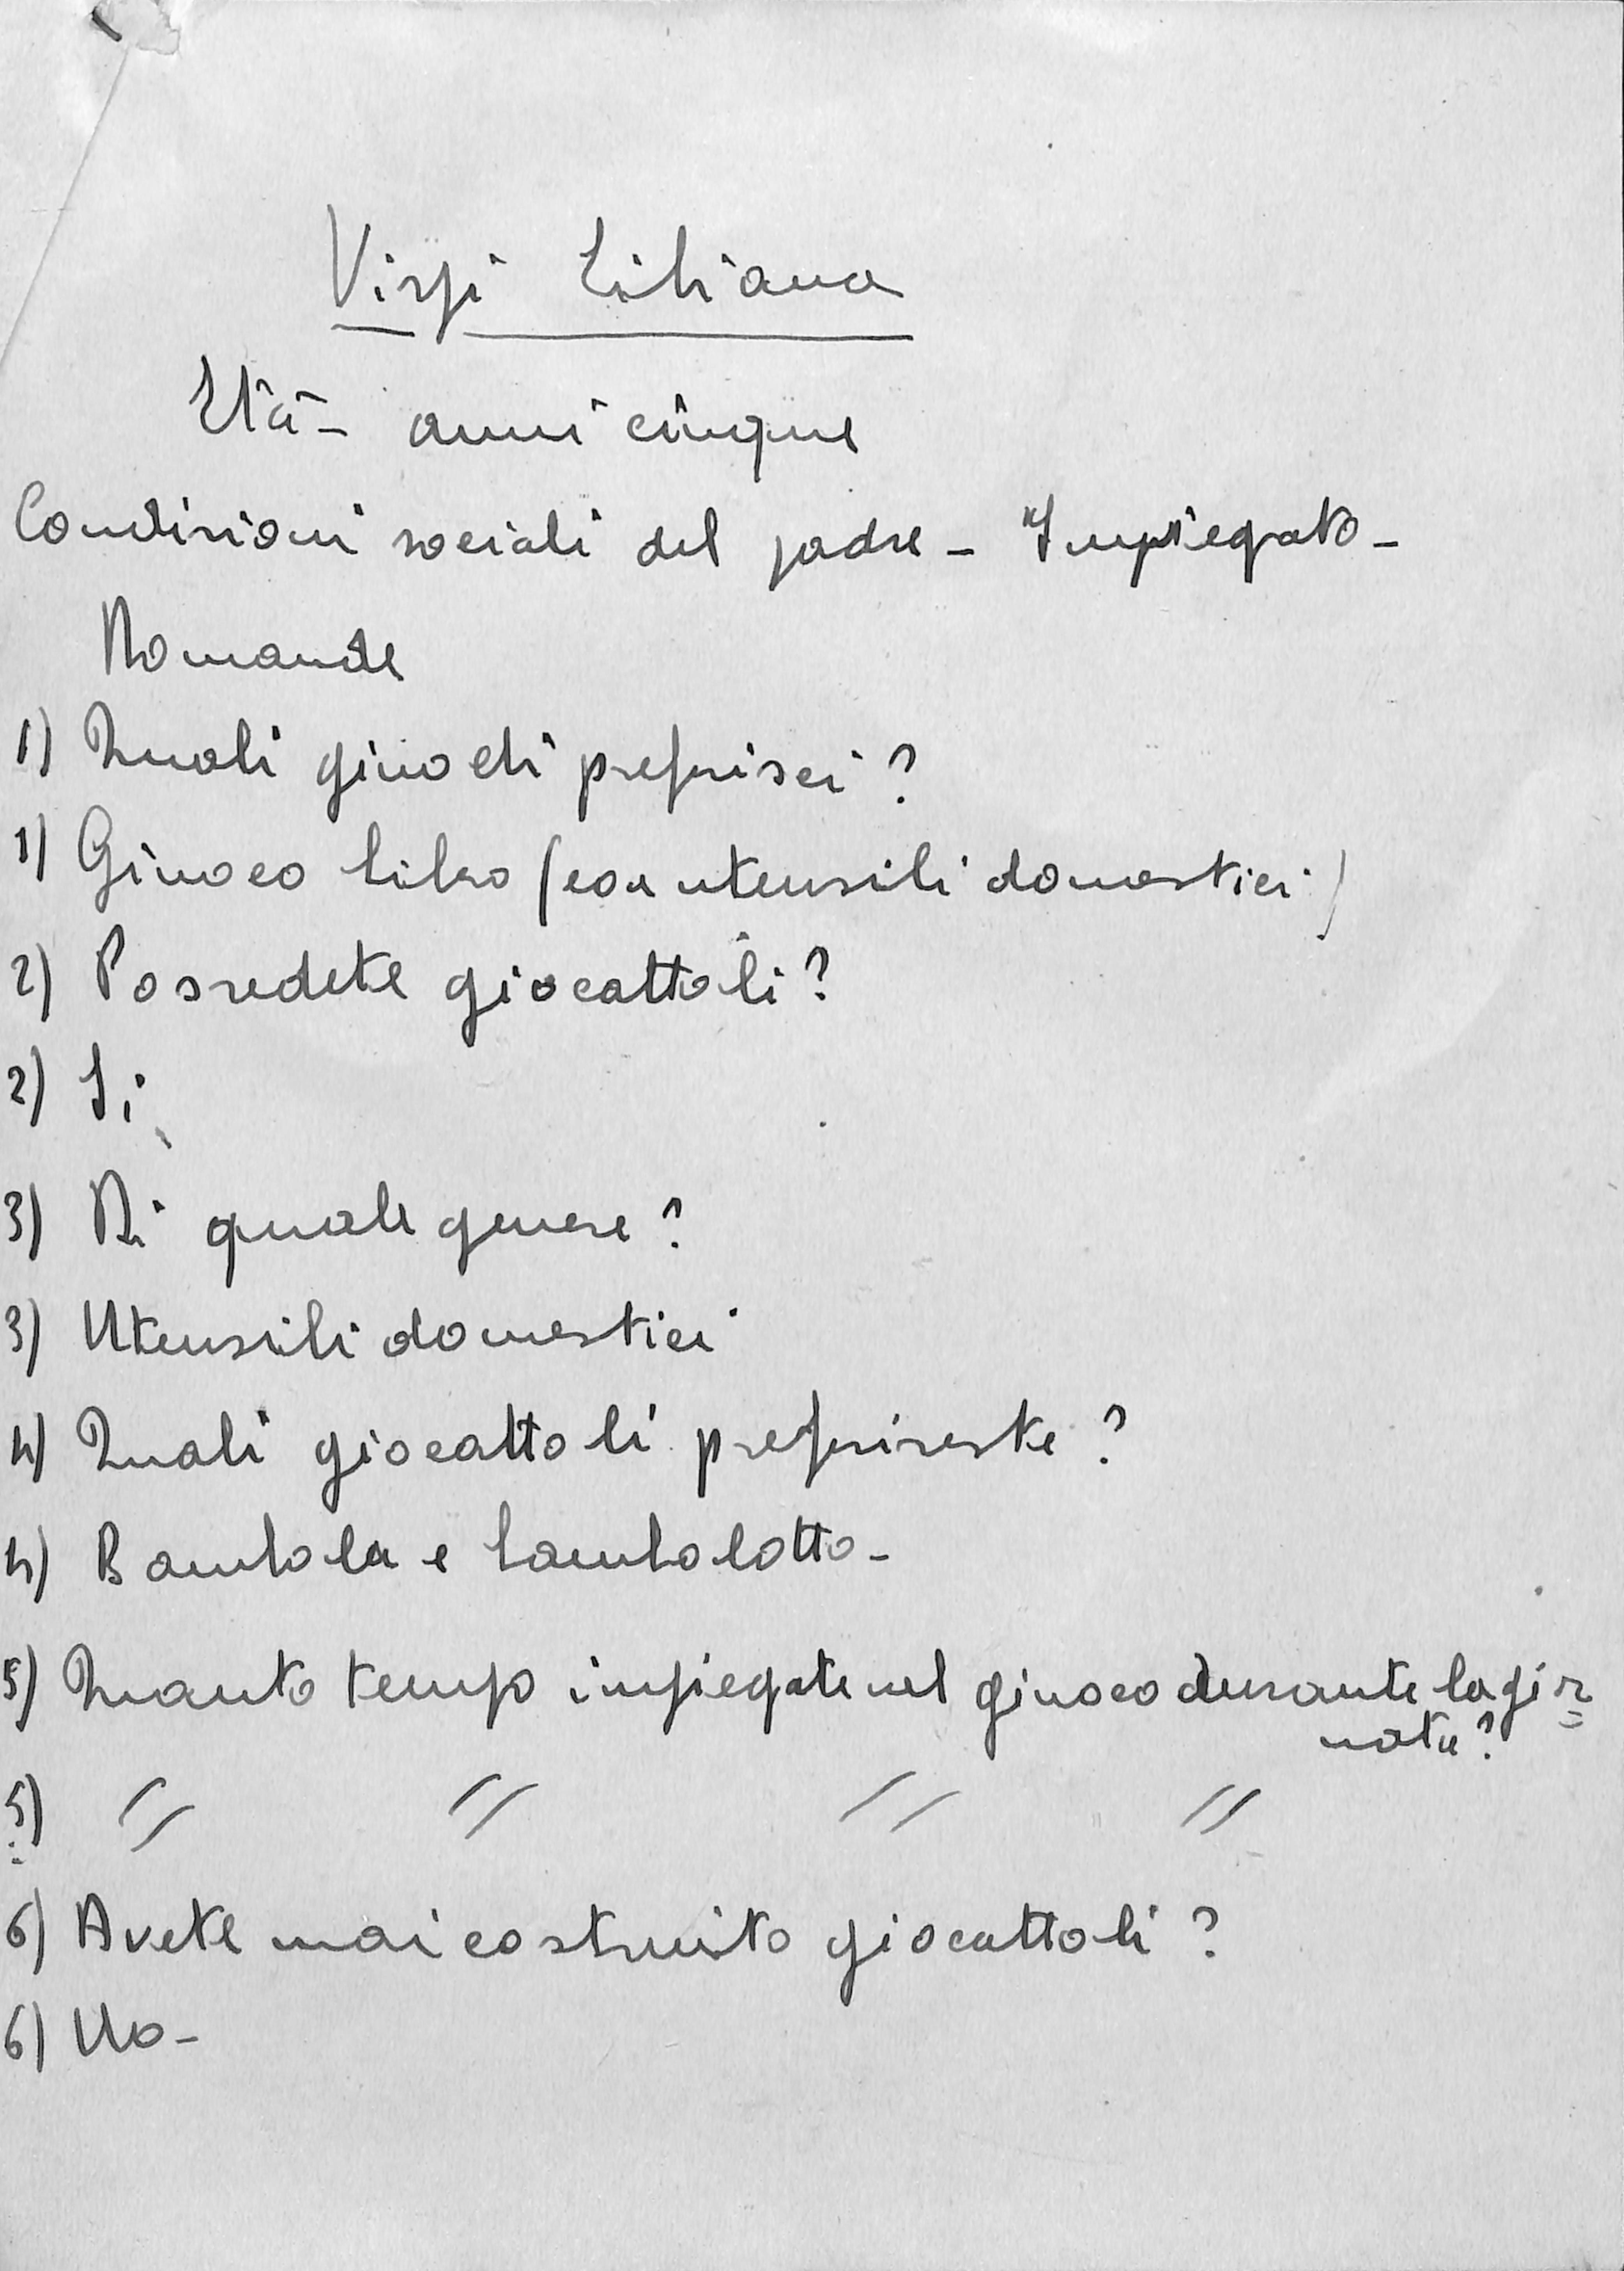 Virpi Liliana
Età - anni cinque
Condizioni sociali del padre - Impiegato -
Domande
1) Quali giuochi preferisci?
1) Giuoco libro (con utensili domestici)
2) Possedete giocattoli?
2) Si
3) Di quale genere?
3) Utensili domestici
4) Quali giocattoli preferireste?
4) Bambola e bambolotto -
5) Quanto tempo impiegate nel giuoco durante la gior=
nata?
5) // // // //
6) Avete mai costruito giocattoli?
6) No -